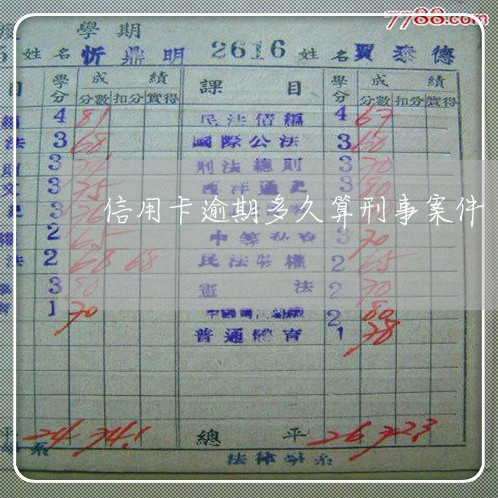 7788.com
學期
姓名 忻鼎明 2616 姓名 賈泰德
目 學分 成績 課目 學分 成績
分數 扣分 實得 分數 扣分 實得
4 81 民法債編 4 67
法 3 68 國際公法 3 60
3 刑法總則 3 70
3 75 西洋通史 3 80
3
信用卡逾期多久算刑事案件
2 65 3 70
法 2 68 68 民法物權 2 65
3 80 憲法 2 70
1 70 2 80
普通體育 1 78
平 24 74.1 總平 26 72.3
系 法律學系